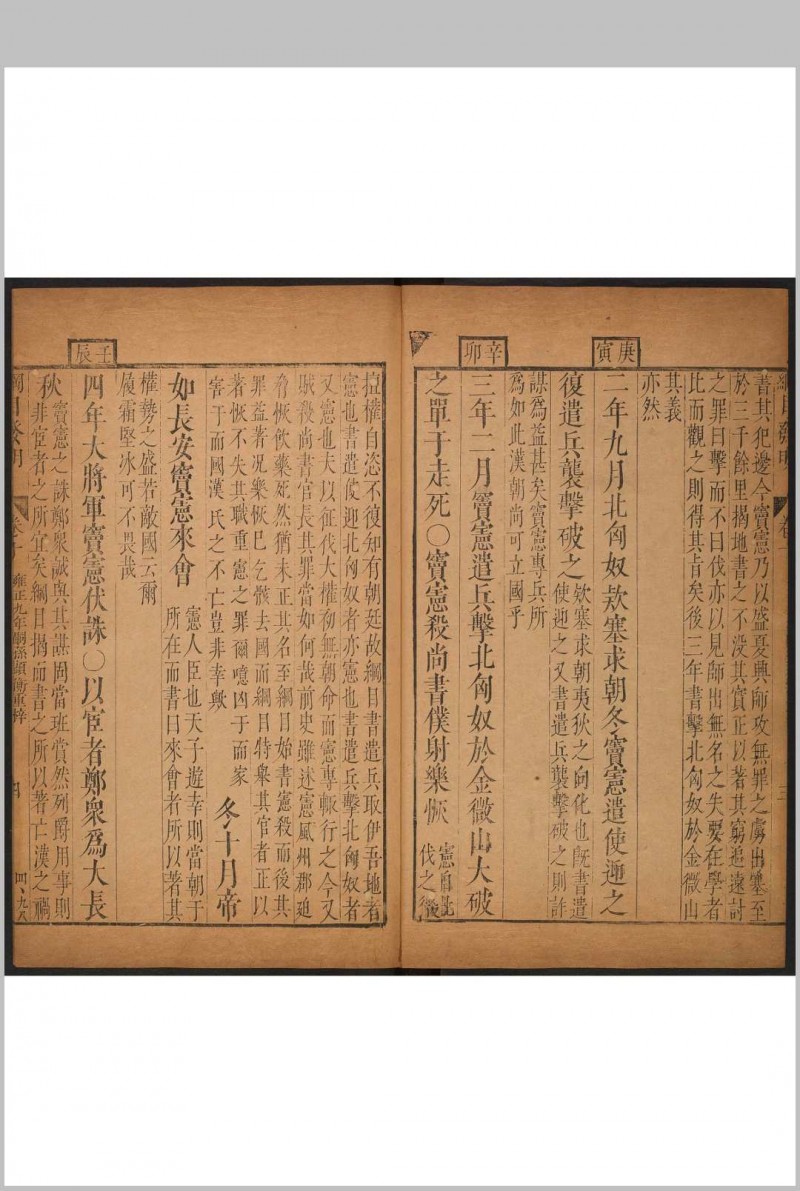 書其犯邊今竇憲乃以盛夏興師攻無罪之虜出塞至
於三千餘里揭地書之不没其實正以著其窮追遠討
之罪曰擊而不曰伐亦以見師出無名之失要在學者
比而觀之則得其旨矣後三年書擊北匈奴於金微山
其義
亦然
庚寅
二年九月北匈奴欵塞求朝冬竇憲遣使迎之
復遣兵襲擊破之
欵塞求朝夷狄之向化也既書遣
使迎之又書遣兵襲擊破之則詐
謀爲益甚矣竇憲專兵所
爲如此漢朝尚可立國乎
辛卯
三年二月竇憲遣兵擊北匈奴於金微山大破
之單于走死〇竇憲殺尚書僕射樂恢
憲自北
伐之後
拉權自恣不復知有朝廷故綱目書遣兵取伊吾地者
憲也書遣使迎北匈奴者亦憲也書遣兵擊北匈奴者
又憲也夫以征伐大權初無朝命而憲專輒行之今又
賊殺尚書官長其罪當如何哉前史雖述憲風州郡迫
脅恢飲藥死然猶未正其名至綱目始書憲殺而後其
罪益著况樂恢巳乞骸去國而綱目特舉其官者正以
著恢不失其職重憲之罪爾噫凶于而家
害于而國漢氏之不亡豈非幸歟
冬十月帝
如長安竇憲來會
憲人臣也天子遊幸則當朝于
所在而書曰來會者所以著其
權勢之盛若敵國云爾
履霜堅冰可不畏哉
壬辰
四年大將軍竇憲伏誅〇以宦者鄭衆爲大長
秋
竇憲之誅鄭衆誠與其謀固當班賞然列爵用事則
非宦者之所宜矣綱目揭而書之所以著亡漢之禍
綱目發明
卷十
雍正九年嗣孫
重梓
四
四、九八